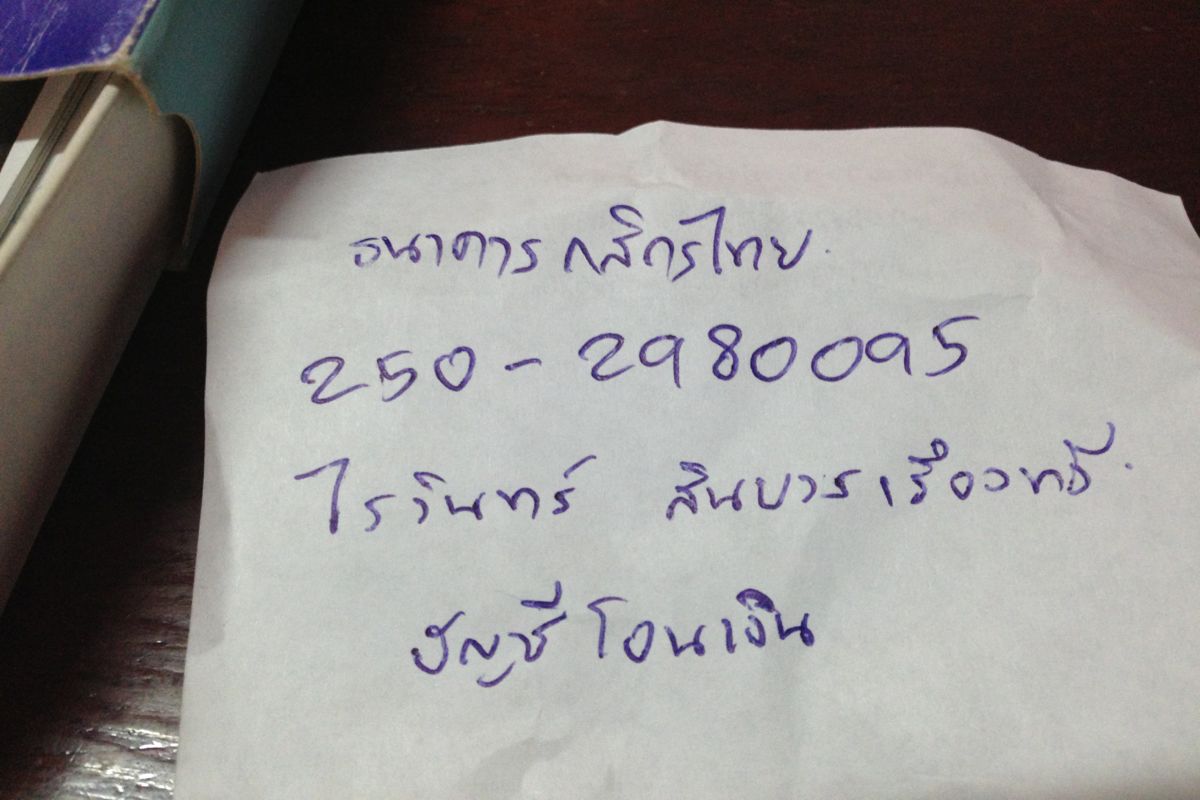 ธนาคาร กสิกรไทย
250-2980095
ไรวินทร์ สินบวรเรืองทวี
บัญชี โอนเงิน